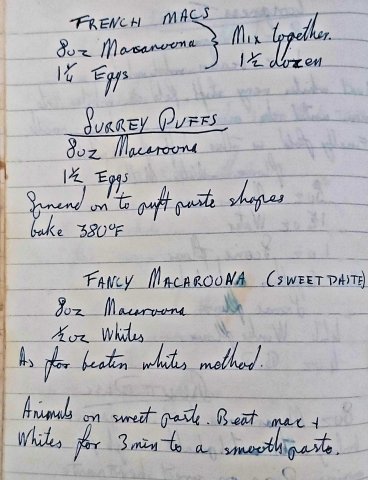 FRENCH MACS
8oz Macaroona } Mix together.
1¼ Eggs 1½ dozen
SURREY PUFFS
8oz Macaroona
1½ Eggs
Spread on to puff paste shapes
bake 380°F
FANCY MACAROONA (SWEET PASTE)
8oz Macaroona
½oz Whites
As for beaten whites method.
Animals on sweet paste. Beat mac +
Whites for 3 min to a smooth paste.